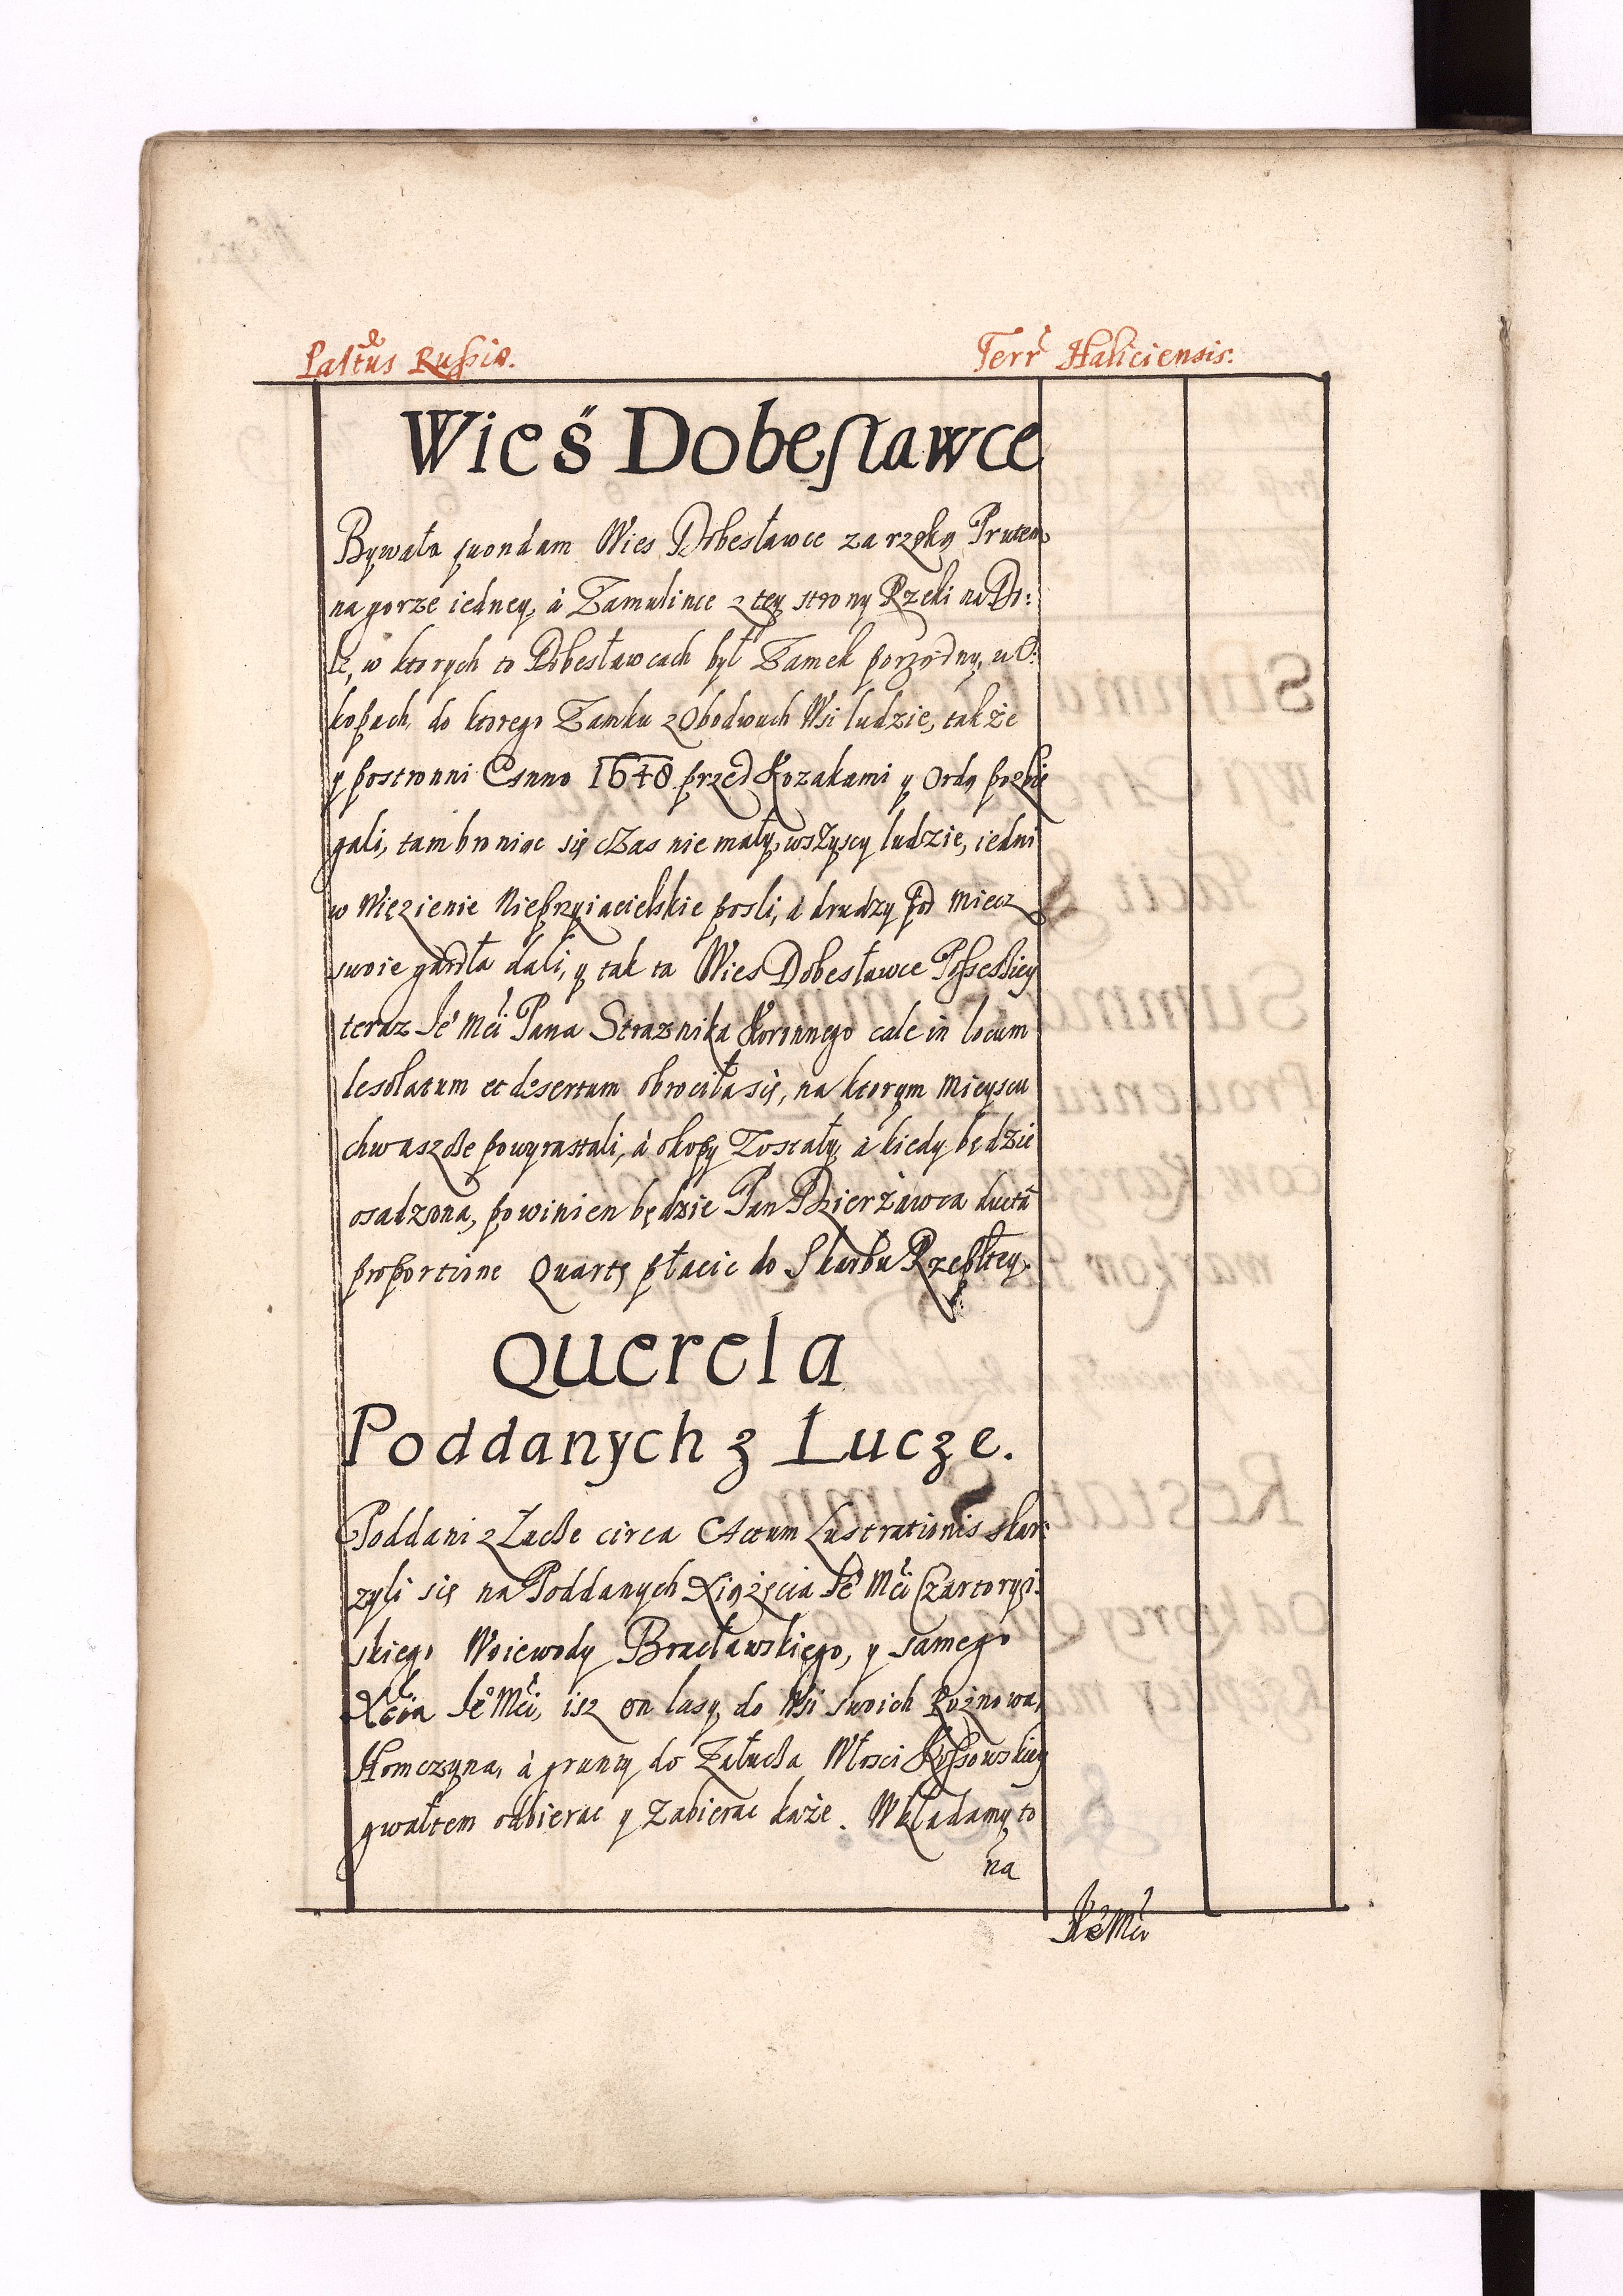 Paltus Russiæ. Terr Haliciensis:
Wieś Dobesławce
Bywała quondam Wies Dobesławce za rzeką Prutem,
na gorze iedney, à Zamulince z tey strony Rzeki na Do:
le, w ktorych to Dobesławcach był Zamek porządny, w O:
kopach, do ktorego Zamku z Obodwuch Wsi ludzie, także
y postronni Anno 1648 przed Kozakami y Ordą pozbie
gali, tam broniąc się czas nie mały, wszyscy ludzie, iedni
w Więzienie Nieprzyiacielskie posli, à drudzy pod miecz
swoie gardła dali, y tak ta Wies Dobesławce Possessiey
teraz Je° Mći Pana Straznika Koronnego cale in locum
desolatum et desertum obrociła się, na ktorym mieyscu
chwaszcze powyrastali, à okopy Zostały, à kiedy będzie
osadzona, powinien będzie Pan Dzierżawca ductâ
proportione Quartę płacic do Skarbu Rzepltey.
Querela
Poddanych z Łucze.
Poddani z Łucze circa Actum Lustrationis skar:
zyli się na Poddanych Xiążęcia Je° Mći Czartoryi:
skiego Woiewody Bracławskiego, y samego
Xcia Je° Mći, isz on lasy do Wsi swoich Rożnowa,
Homczyna, à grunty do Załucza Włosci Kossowskiey
gwałtem odbierac y Zabierac każe. Wkładamy to
na
Je° Mći